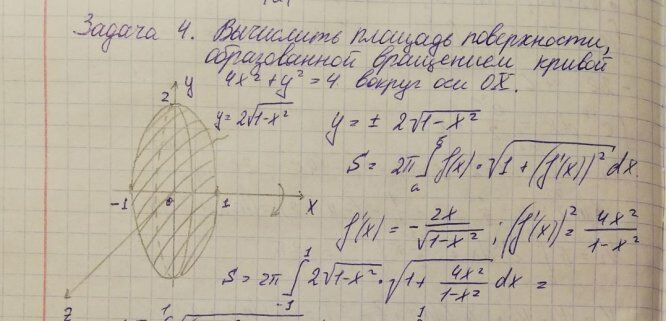 Задача 4. Вычислить площадь поверхности,
образованной вращением кривой
4x² + y² = 4 вокруг оси OX.
y
2
y = 2√(1-x²)
y = ± 2√(1-x²)
S = 2π ∫ₐᵇ f(x) · √(1 + (f'(x))²) dx.
-1 0 1 x
f'(x) = - 2x/√(1-x²) ; (f'(x))² = 4x²/(1-x²)
S = 2π ∫₋₁¹ 2√(1-x²) · √(1 + 4x²/(1-x²)) dx =
z